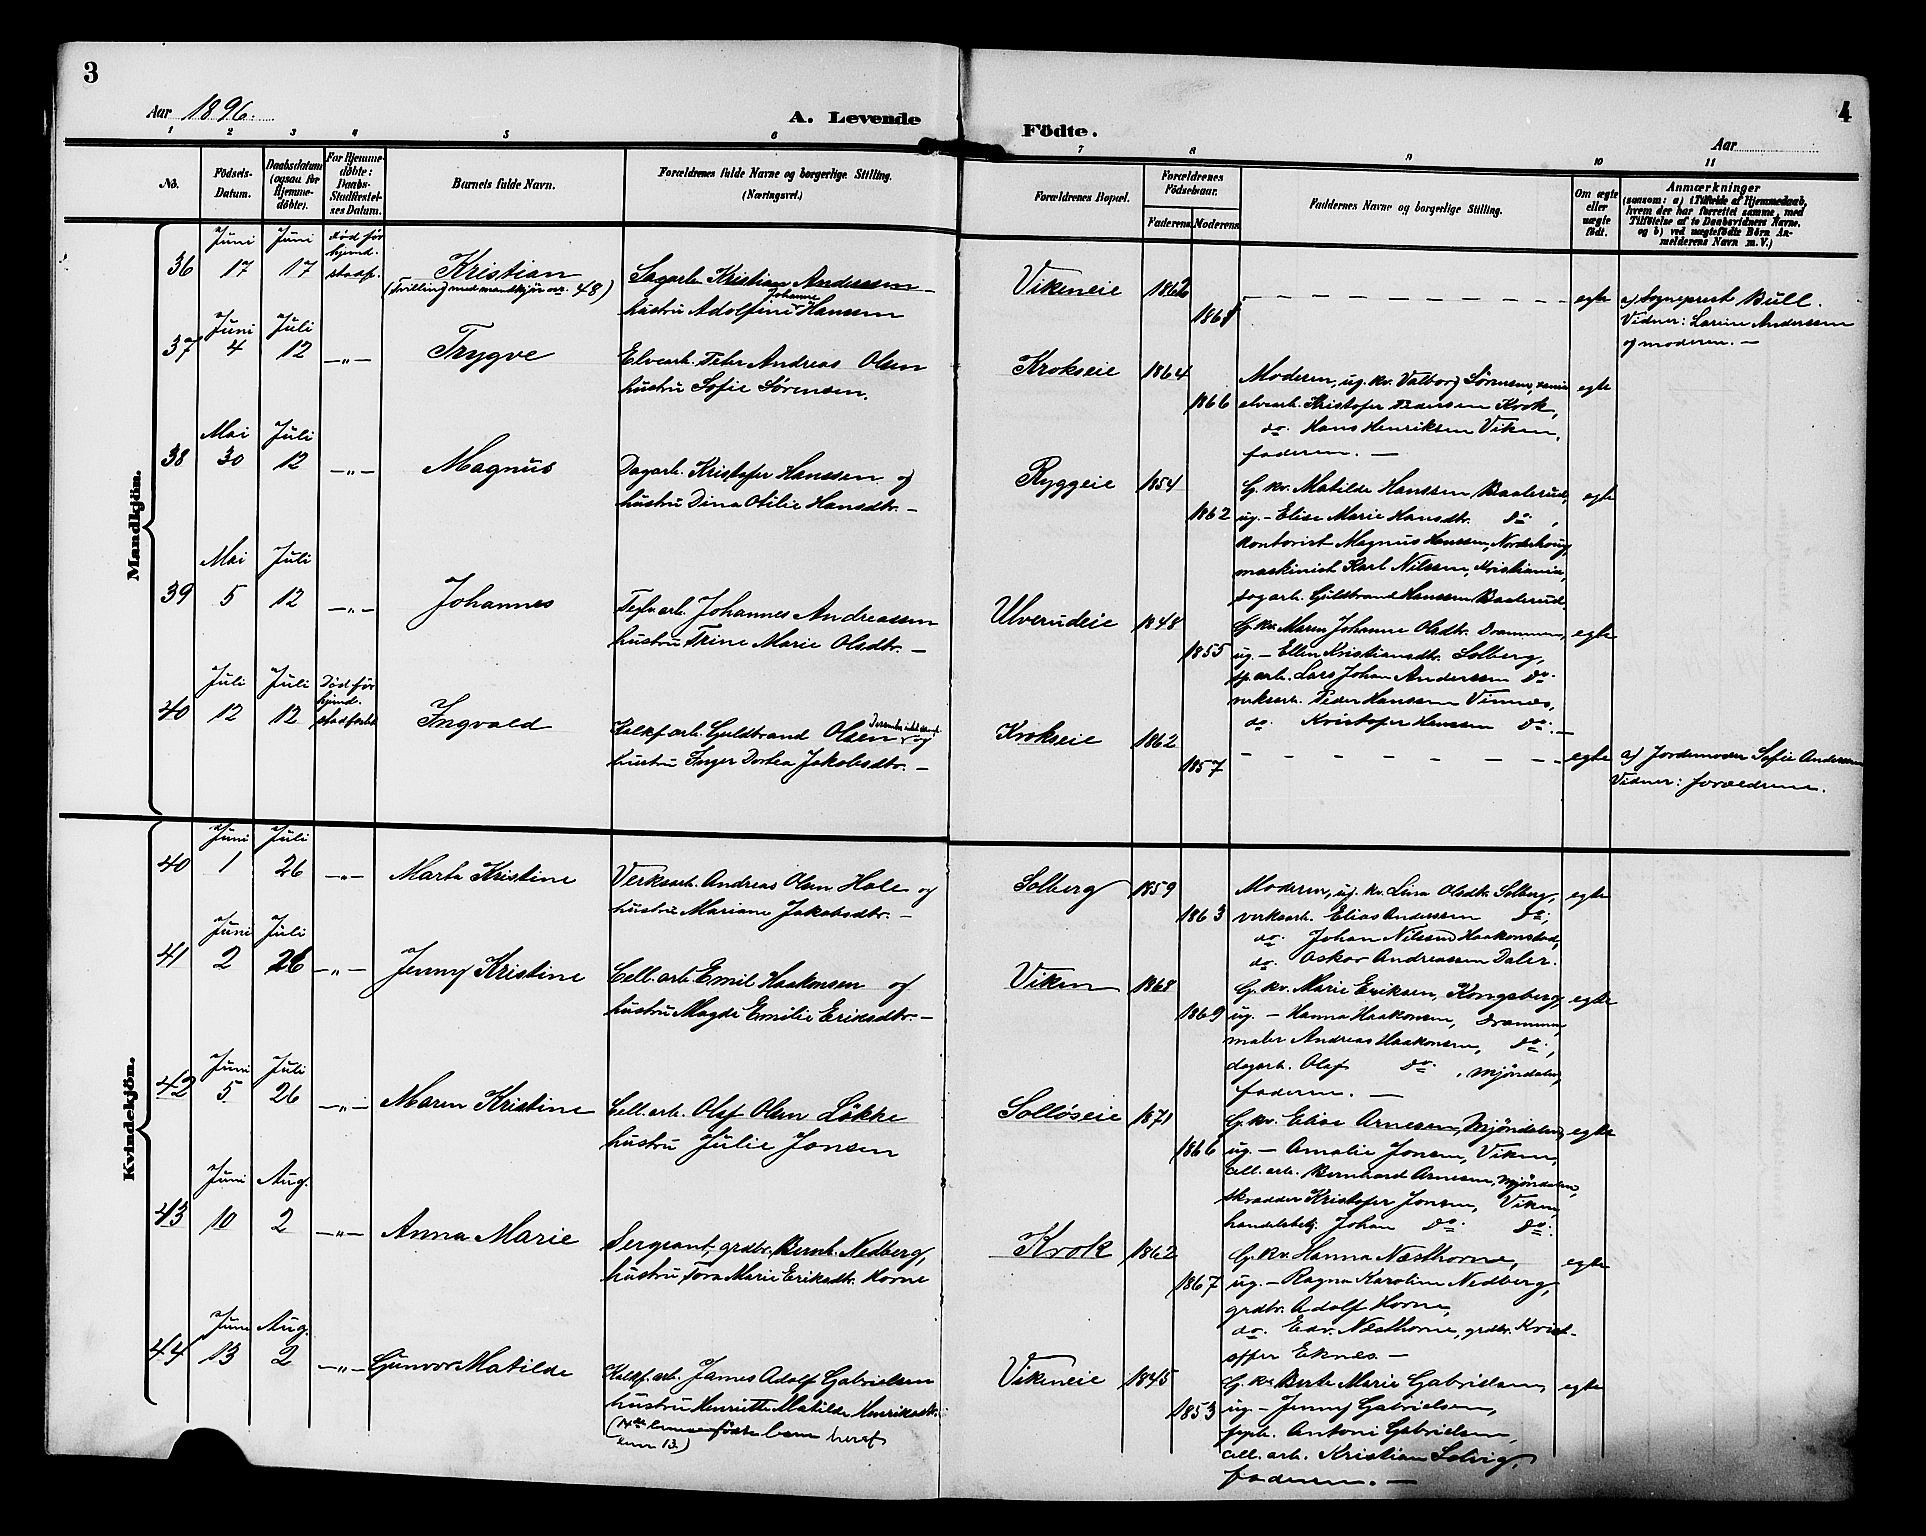 3
4
Aar 1896.
A. Levende
Födte.
Aar
1 2 3 4 5 6 7 8 9 10 11
No.
Födsels-Datum.
Daabsdatum (ogsaa for Hjemme-döbte).
For Hjemme-döbte: Daabs-Stadfæstel-ses Datum.
Barnets fulde Navn.
Forældrenes fulde Navne og borgerlige Stilling. (Næringsvei.)
Forældrenes Bopæl.
Forældrenes Födselsaar.
Faderens. Moderens.
Faddernes Navne og borgerlige Stilling.
Om ægte eller uægte födt.
Anmærkninger
(saasom: a) i Tilfælde af Hjemmedaab, hvem der har forrettet samme, med Tilföielse af to Daabsvidners Navne, og b) ved uægtefödte Börn Anmelderens Navn m. V.)
Mandkjön.
36 Juni 17 Juni 17 død før hjemd. stadf.
Kristian
(tvilling med mandkjøn nr. 48)
Sagarb. Kristian Anderssen
hustru Adolfine Johanne Hansen
Vikeneie 1862 1868
egte
a) Sogneprest Bull.
Vidner: Larine Anderssen
og moderen. —
37 Juni 4 Juli 12 —"—
Trygve
Elvearb. Peter Andreas Olsen
hustru Sofie Sørensen.
Krokseie 1864 1866
Moderen, ug. kv. Valborg Sørensen,
elvearb. Kristofer Pedersen Krok,
do. Hans Henriksen Viken,
faderen. —
egte
38 Mai 30 Juli 12 —"—
Magnus
Dagarb. Kristofer Hanssen og
hustru Dina Otilie Hansdtr. —
Ryggeie 1854 1862
G. kv. Matilde Hanssen Baalsrud,
ug. — Elise Marie Hansdtr. do,
kontorist Magnus Hanssen, Norderhoug
maskinist Karl Nilssen, Kristiania,
sagarb. Guldbrand Hanssen Baalsrud
egte
39 Mai 5 Juli 12 —"—
Johannes
Teglv.arb. Johannes Andreassen
hustru Trine Marie Olsdtr. —
Ulverudeie 1848 1855
G. kv. Maren Johanne Olsdtr. Drammen,
ug. — Ellen Kristiansdtr. Solberg,
sp.arb. Lars Johan Anderssen do.
verksarb. Peder Hanssen Vinnes,
do. Kristofer Hanssen do. —
egte
40 Juli 12 Juli 12 Død før hjemd. stadfæst.
Ingvald
Kalkf.arb. Guldbrand Olsen og
hustru Inger Dortea Jakobsdtr. —
Krokseie 1862 1857
egte
a) Jordemoder Sofie Anderssen
Vidner: forældrene.
Kvindekjön.
40 Juni 1 Juli 26 —"—
Marta Kristine
Verksarb. Andreas Olsen Hole og
hustru Mariane Jakobsdtr. —
Solberg 1859 1863
Moderen, ug. kv. Lina Olsdtr. Solberg,
verksarb. Elias Anderssen do,
do. Johan Nilssen Haakonstad,
do. Oskar Andreassen Daler.
egte
41 Juni 2 Juli 26 —"—
Jenny Kristine
Cell.arb. Emil Haakonsen og
hustru Magda Emilie Eriksdtr. —
Viken 1868 1869
G. kv. Marie Eriksen, Kongsberg,
ug. — Hanna Haakonsen, Drammen,
maler Andreas Haakonsen, do,
dagarb. Olaf do., Mjøndalen,
faderen. —
egte
42 Juni 5 Juli 26 —"—
Maren Kristine
Cell.arb. Olaf Olsen Løkke
hustru Julie Jonsen
Solløseie 1871 1866
G. kv. Elise Arnesen, Mjøndalen,
ug. — Amalie Jonsen, Viken,
cell. arb. Bernhard Arnesen, Mjøndalen,
skrædder Kristofer Jonsen, Viken,
handelsbetj. Johan do. do.
egte
43 Juni 10 Aug. 2 —"—
Anna Marie
Sergeant, grdbr. Bernt Nedberg,
hustru Tora Marie Eriksdtr. Horne
Krok 1862 1867
G. kv. Hanna Næsthorne,
ug. — Ragna Karoline Nedberg,
grdbr. Adolf Horne,
do. Edv. Næsthorne, grdbr. Krist-
offer Eknes —
egte
44 Juni 13 Aug. 2 —"—
Gunvor Matilde
Kalkf. arb. James Adolf Gabrielsen
hustru Henriette Matilde Henriksdtr.
Vikeneie 1845 1853
G. kv. Berte Marie Gabrielsen,
ug. — Jenny Gabrielsen,
Antoni Gabrielsen,
cell. arb. Kristian Solvig,
faderen. —
egte